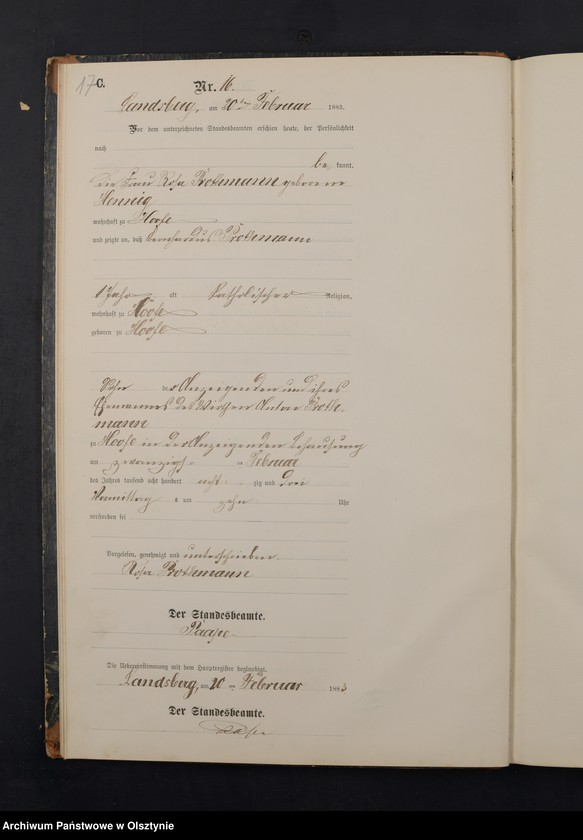 17 C.
Nr. 16.
Landsberg, am 20ten Februar 1883.
Vor dem unterzeichneten Standesbeamten erschien heute, der Persönlichkeit
nach
be kannt,
die Frau Rosa geborene
Hennig
wohnhaft zu Hoofe
und zeigte an, daß
1 Jahr alt katholischer Religion,
wohnhaft zu Hoofe
geboren zu Hoofe
Sohn der Anzeigenden und ihres
Ehemannes des Wirthen Anton
mann
zu Hoofe in der Anzeigenden Behausung
am zwanzigsten Februar
des Jahres tausend acht hundert acht zig und drei
Vormittags um zehn Uhr
verstorben sei
Vorgelesen, genehmigt und unterschrieben
Rosa
Der Standesbeamte.
Die Uebereinstimmung mit dem Hauptregister beglaubigt.
Landsberg, am 20ten Februar 1883
Der Standesbeamte.
Archiwum Państwowe w Olsztynie